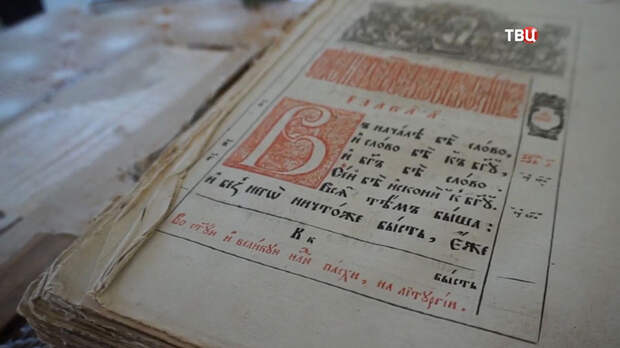 ТВЦ
ГЛАВА А҃
Въ нача́лѣ бѣ̀ сло́во,
и҆ сло́во бѣ̀ къ бг҃ꙋ,
и҆ бг҃ъ бѣ̀ сло́во.
Се́й бѣ̀ и҆сконѝ къ бг҃ꙋ.
Всѧ̑ тѣ́мъ бы́ша:
и҆ без̾ негѡ̀ ничто́же бы́сть, є҆́же
бы́сть
Во ст҃ꙋ́ю и҆ вели́кꙋю недѣ́лю па́схи, на лїтꙋргі́и.